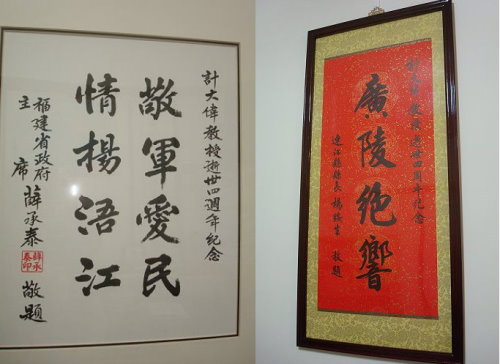 計大偉教授逝世四週年紀念
敬軍愛民
情楊浯江
福建省政府
主席 薛承泰 敬題
薛承泰印
計大偉教授逝世四周年紀念
廣陵絕響
連江縣縣長 楊綏生 敬題